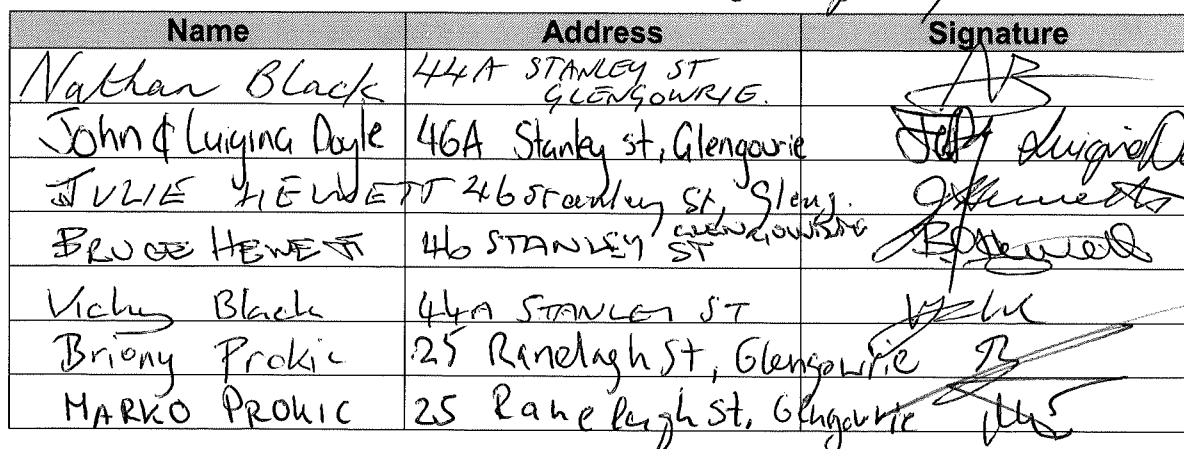 Name Address Signature
Nathan Black 44A STANLEY ST
GLENGOWRIE.
John & Luigina Doyle 46A Stanley st, Glengowrie
JULIE HEWETT 46 Stanley St, Gleng.
BRUCE HEWETT 46 STANLEY ST GLENGOWRIE
Vicky Black 44A STANLEY ST
Briony Prokic 25 Ranelagh St, Glengowrie
MARKO PROKIC 25 Ranelaugh St, Glengowrie